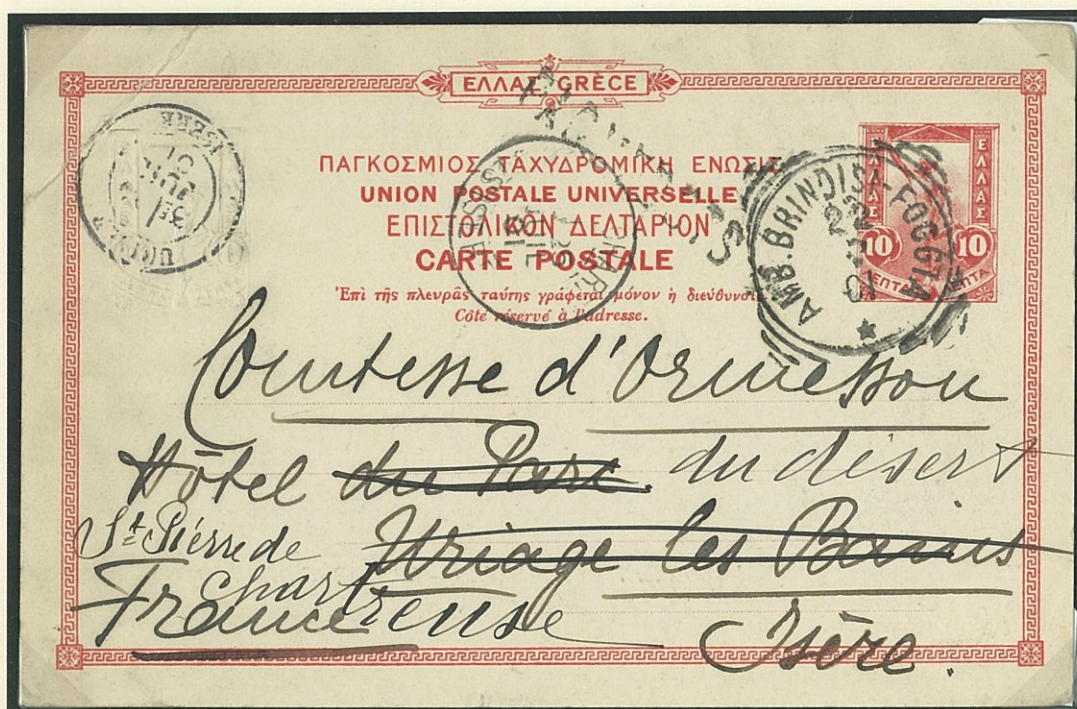 ΕΛΛΑΣ GRÈCE
ΠΑΓΚΟΣΜΙΟΣ ΤΑΧΥΔΡΟΜΙΚΗ ΕΝΩΣΙΣ
UNION POSTALE UNIVERSELLE
ΕΠΙΣΤΟΛΙΚΟΝ ΔΕΛΤΑΡΙΟΝ
CARTE POSTALE
Ἐπὶ τῆς πλευρᾶς ταύτης γράφεται μόνον ἡ διεύθυνσις
Côté réservé à l'adresse.
ΕΛΛΑΣ
10 10
ΛΕΠΤΑ ΛΕΠΤΑ
AMB. BRINDISI-FOGGIA
22
ISERE
Comtesse d'Ormesson
Hôtel du Parc du désert
St Pierre de Uriage les Bains
Chartreuse
France
Isère.